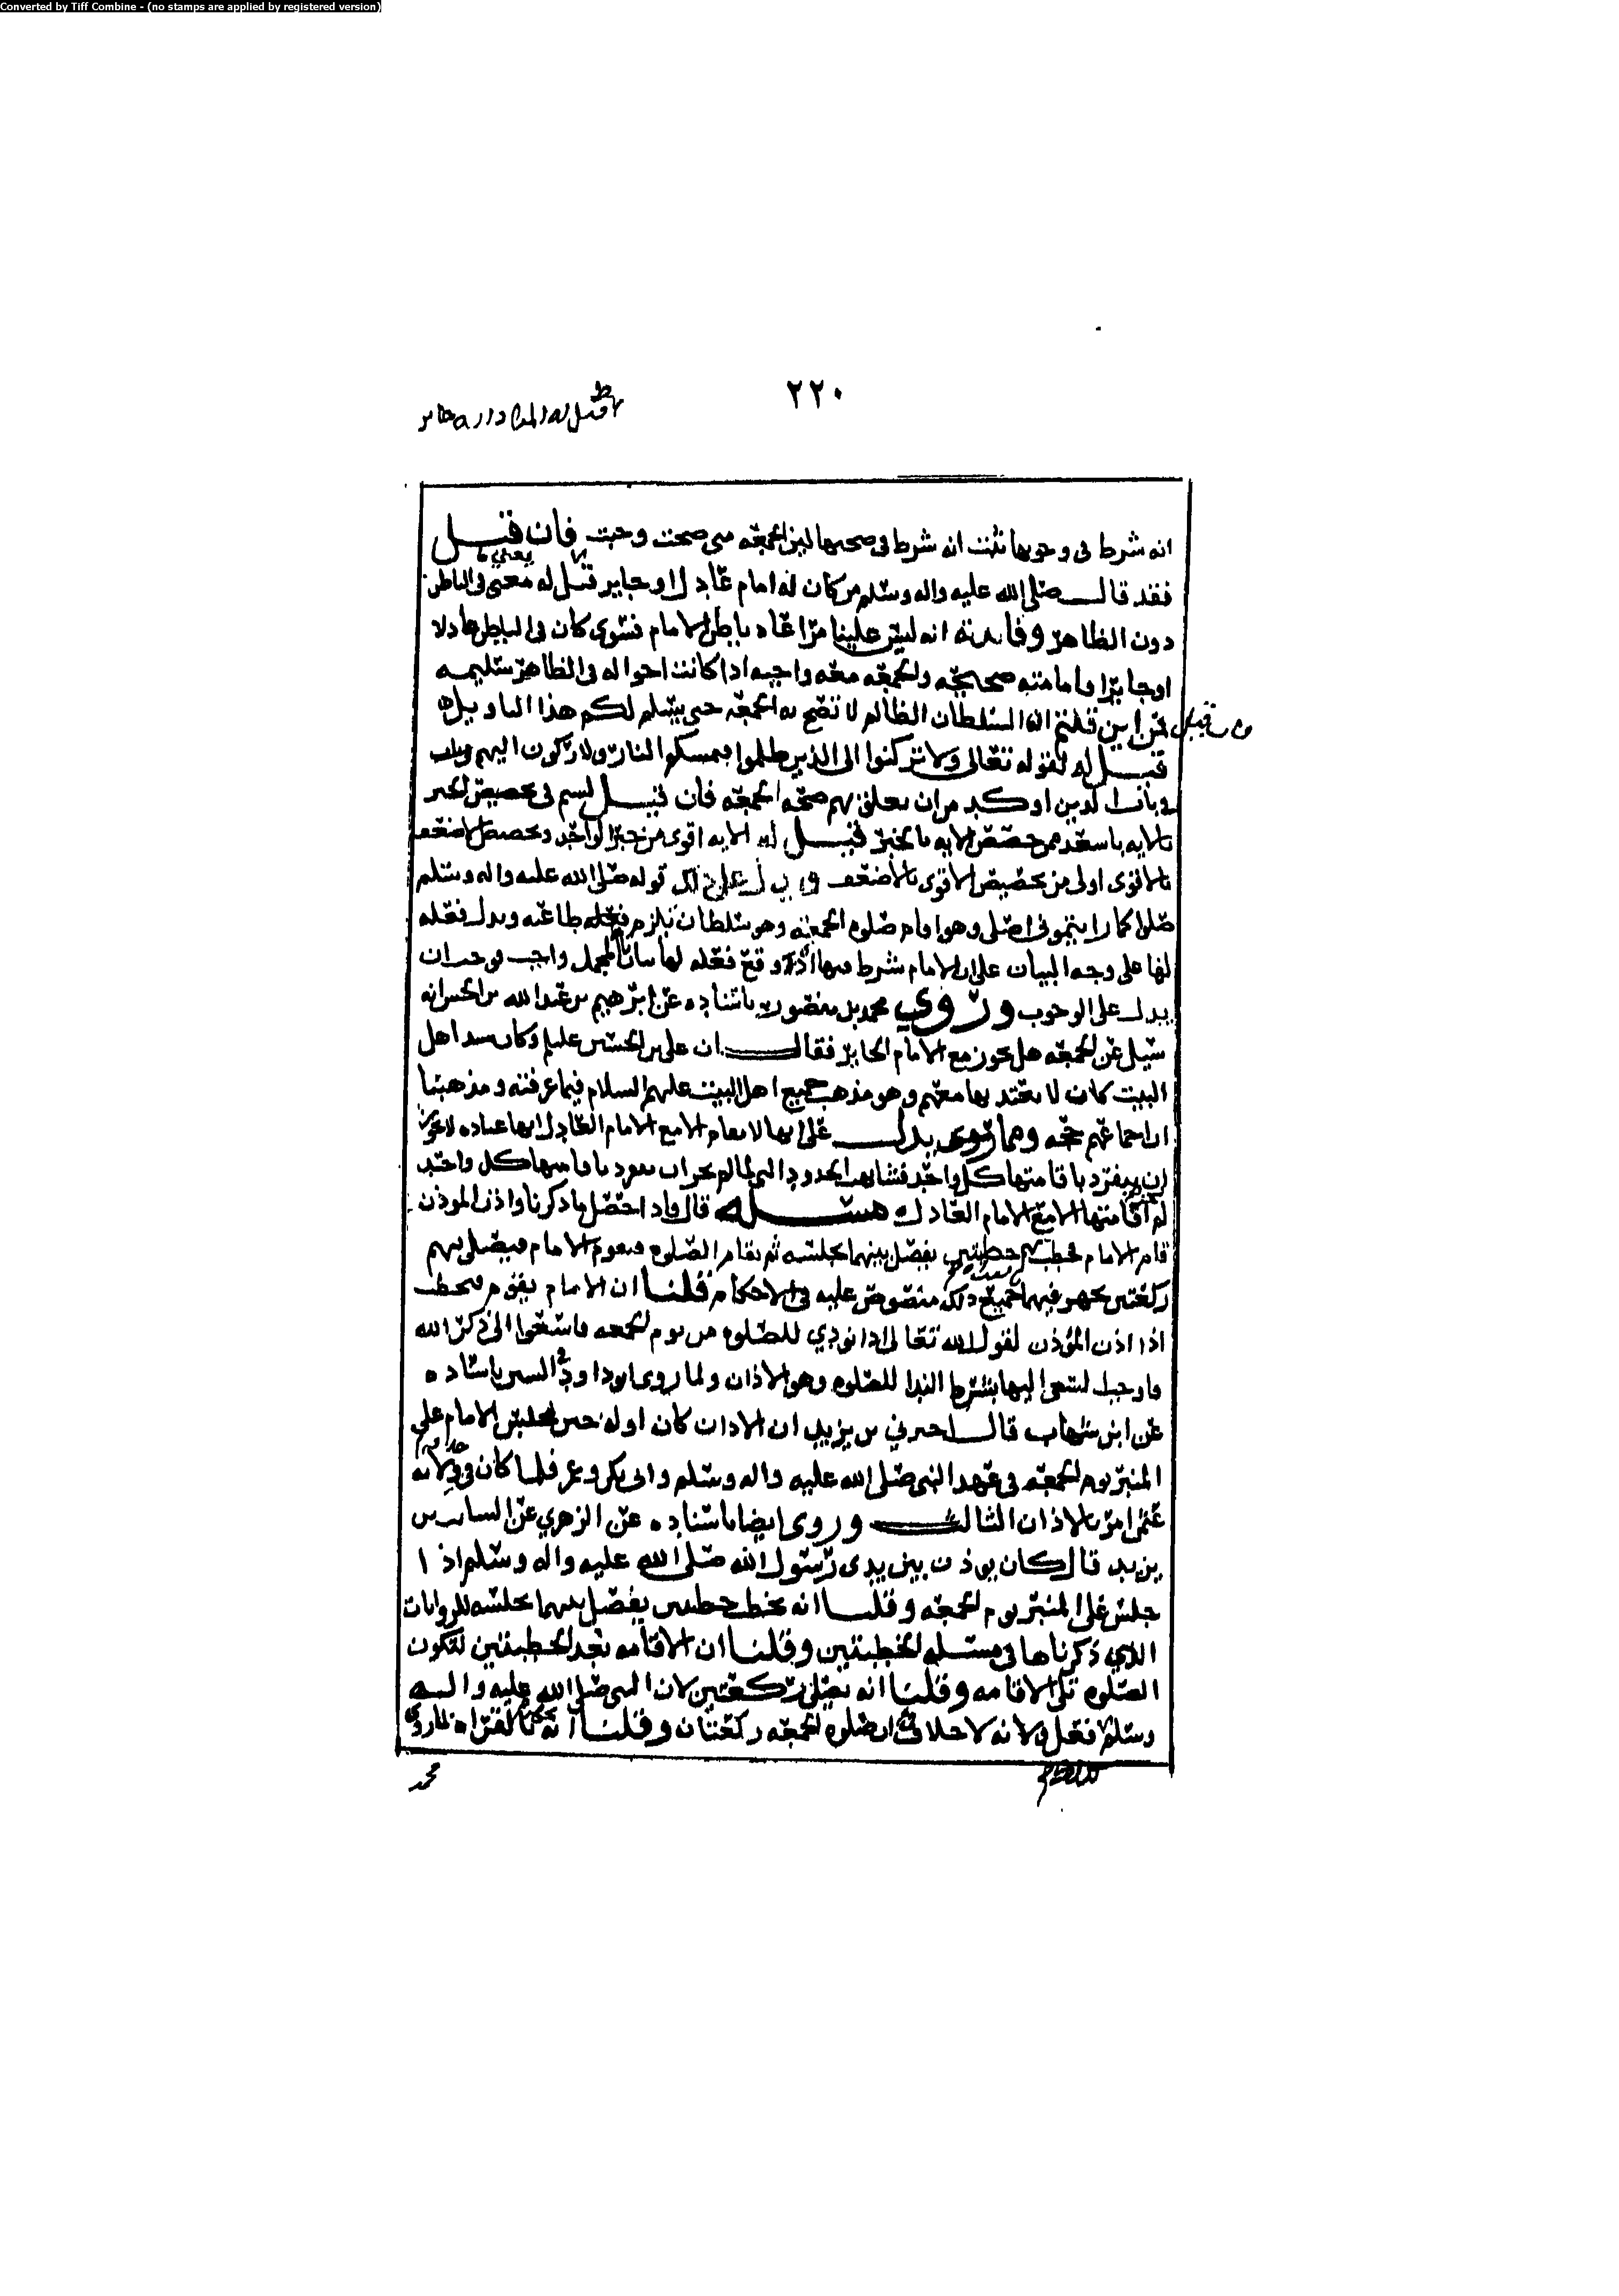 Converted by Tiff Combine - (no stamps are applied by registered version)
٢٢٠
قيل له المراد
انه شرط في وجوبها ثبت انه شرط في صحتها لان الجمعه متى صحت وجبت فان قيل
فقد قال صلى الله عليه واله وسلم من كان له امام عادل او جاير قيل له معنى في الباطن
يعني
دون الظاهر وفايدته انه ليس علينا مراعاه باطن الامام فسوى كان في الباطن عادلا
او جايرا وامامته صحيحه والجمعه معه واجبه اذا كانت احواله في الظاهر سليمه
فان قيل
فمن اين قلتم ان السلطان الظالم لا تصح به الجمعه حتى يسلم لكم هذا التاويل
قيل له لقوله تعالى ولا تركنوا الى الذين ظلموا فتمسكم النار ولا ركون اليهم
في باب الدين اوكد من ان تعلق بهم صحه الجمعه فان قيل لستم في تخصيص الخبر
بالايه باسعد ممن خصص الايه بالخبر قيل له الايه اقوى من خبر الواحد وتخصيص الاضعف
بالاقوى اولى من تخصيص الاقوى بالاضعف ويدل على ذلك قوله صلى الله عليه واله وسلم
صلوا كما رايتموني اصلي وهو امام صلوه الجمعه وهو سلطان تلزم طاعته ويدل فعله
لها على وجه البيان على ان الامام شرط فيها اذ وقع فعله لها بيانا لمجمل واجب فوجب ان
يدل على الوجوب وروي محمد بن منصور باسناده عن ابرهيم بن عبد الله بن الحسن انه
سيل عن الجمعه هل تجوز مع الامام الجاير فقال ان علي بن الحسين عليلم وكان سيد اهل
البيت كان لا يعتد بها معهم وهو مذهب جميع اهل البيت عليهم السلام فيما عرفته ومذهبنا
ان اجماعهم حجه ومما يدل على انها لا تقام الا مع الامام العادل انها عباده لا يجوز
ان ينفرد باقامتها كل واحد فشابهت الحدود التي لما لم يجز ان ينفرد باقامتها كل واحد
لم اقامتها الا مع الامام العادل مسئله قال واذا حصل ما ذكرنا واذن الموذن
قام الامام فخطب بهم خطبتين يفصل بينهما بجلسه ثم تقام الصلوه ويقوم الامام فيصلي بهم
ركعتين يجهر فيهما جميع ذلك منصوص عليه في الاحكام قلنا ان الامام يقوم فيخطب
اذا اذن المؤذن لقول الله تعالى اذا نودي للصلوه من يوم الجمعه فاسعوا الى ذكر الله
فاوجب السعي اليها بشرط الندا للصلوه وهو الاذان ولما روى ابو داود في السنن باسناده
عن ابن شهاب قال اخبرني بن يزيد ان الاذان كان اوله حين يجلس الامام على
المنبر يوم الجمعه في عهد النبي صلى الله عليه واله وسلم وابي بكر وعمر فلما كان في خلافه
عثمن امر بالاذان الثالث وروى ايضا باسناده عن الزهري عن السايب بن
يزيد قال كان يوذن بين يدي رسول الله صلى الله عليه واله وسلم اذا
جلس على المنبر يوم الجمعه وقلنا انه يخطب خطبتين يفصل بينهما بجلسه للروايات
الذي ذكرناها في مسئله الخطبتين وقلنا ان الاقامه بعد الخطبتين لتكون
الصلوه تلي الاقامه وقلنا انه يصلي ركعتين لان النبي صلى الله عليه واله
وسلم فعل ولانه لا خلاف ان صلوه الجمعه ركعتان وقلنا انه يجهر بالقراه لما روى
محمد